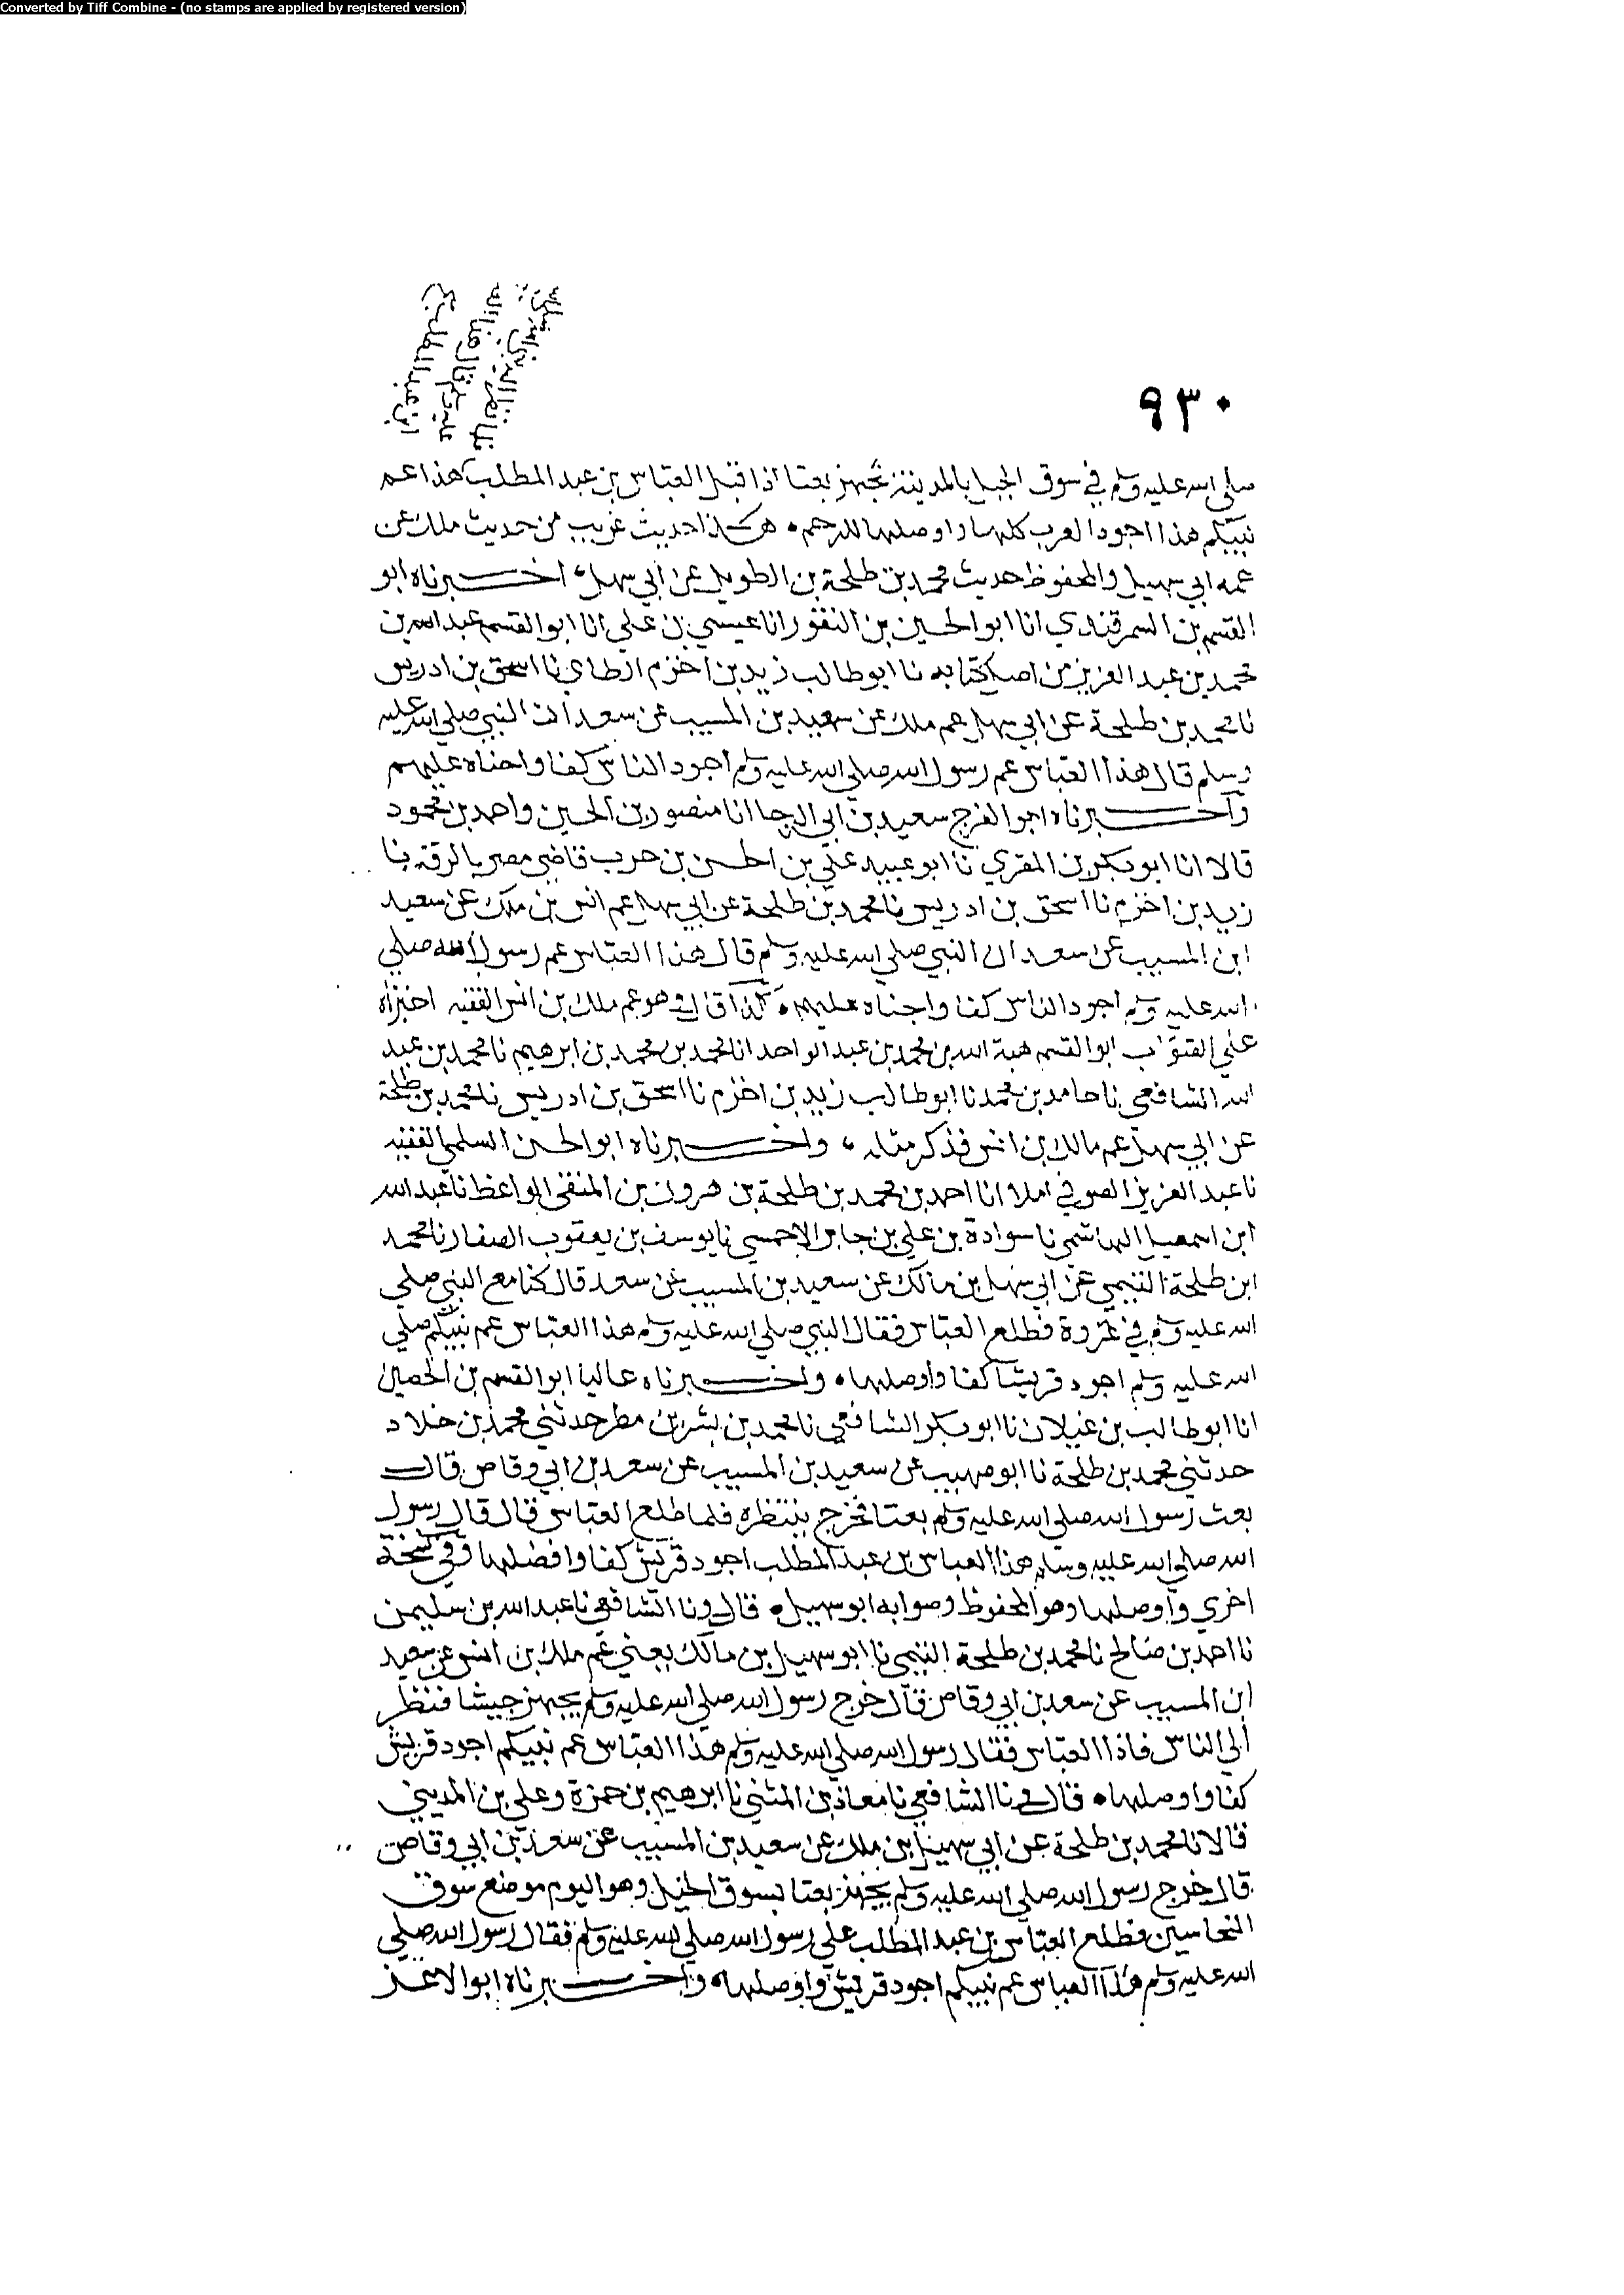 Converted by Tiff Combine - (no stamps are applied by registered version)
٩٣٠
صلى الله عليه وسلم في سوق الجبل بالمدينة تجهز بعثا اذا قبل العباس بن عبد المطلب هذا عم
نبيكم هذا اجود العرب كلها واوصلها للرحم هكذا حديث غريب من حديث ملك عن
عمه ابي سهيل والمحفوظ حديث محمد بن طلحة بن الطويل عن ابي سهل اخبرناه ابو
القسم بن السمرقندي انا ابو الحسين بن النقور انا عيسى بن علي انا ابو القسم عبد الله بن
محمد بن عبد العزيز من اصل كتابه نا ابو طالب زيد بن اخزم الطاي نا اسحق بن ادريس
نا محمد بن طلحة عن ابي سهل عم ملك عن سعيد بن المسيب عن سعد ان النبي صلى الله عليه
وسلم قال هذا العباس عم رسول الله صلى الله عليه وسلم اجود الناس كفا واحناه عليهم
واخبرناه ابو الفرج سعيد بن ابي الرجا انا منصور بن الحسين واحمد بن محمود
قالا انا ابو بكر بن المقري نا ابو عبيد علي بن الحسن بن حرب قاضي مصر بالرقة نا
زيد بن اخزم نا اسحق بن ادريس نا محمد بن طلحة عن ابي سهل عم انس بن ملك عن سعيد
ابن المسيب عن سعد ان النبي صلى الله عليه وسلم قال هذا العباس عم رسول الله صلى
الله عليه وسلم اجود الناس كفا واحناه عليهم كذا قال وهو عم ملك بن انس الفقيه اخبرناه
على الصواب ابو القسم هبة الله بن محمد بن عبد الواحد انا محمد بن محمد بن ابرهيم نا محمد بن عبد
الله الشافعي نا حامد بن محمد نا ابو طالب زيد بن اخزم نا اسحق بن ادريس نا محمد بن طلحة
عن ابي سهل عم مالك بن انس فذكر مثله واخبرناه ابو الحسن السلمي الفقيه
نا عبد العزيز الصوفي املا انا احمد بن محمد بن طلحة بن هرون بن المنقى الواعظ نا عبد الله
ابن اسمعيل الهاشمي نا سوادة بن علي بن جابر الاحمسي نا يوسف بن يعقوب الصفار نا محمد
ابن طلحة التيمي عن ابي سهل بن مالك عن سعيد بن المسيب عن سعد قال كنا مع النبي صلى
الله عليه وسلم في غزوة فطلع العباس فقال النبي صلى الله عليه وسلم هذا العباس عم نبيكم صلى
الله عليه وسلم اجود قريشا كفا واوصلها واخبرناه عاليا ابو القسم بن الحصين
انا ابو طالب بن غيلان نا ابو بكر الشافعي نا محمد بن بشر بن مطر حدثني محمد بن خلاد
حدثني محمد بن طلحة نا ابو صهيب عن سعيد بن المسيب عن سعد بن ابي وقاص قال
بعث رسول الله صلى الله عليه وسلم بعثا فخرج ينتظره فلما طلع العباس قال قال رسول
الله صلى الله عليه وسلم هذا العباس بن عبد المطلب اجود قريش كفا وافضلها وفي نسخة
اخرى واوصلها وهو المحفوظ وصوابه ابو سهيل قال ونا الشافعي نا عبد الله بن سليمن
نا احمد بن صالح نا محمد بن طلحة التيمي نا ابو سهيل بن مالك يعني عم ملك بن انس عن سعيد
ابن المسيب عن سعد بن ابي وقاص قال خرج رسول الله صلى الله عليه وسلم يجهز جيشا فنظر
الى الناس فاذا العباس فقال رسول الله صلى الله عليه وسلم هذا العباس عم نبيكم اجود قريش
كفا واوصلها قال ونا الشافعي نا معاذ بن المثنى نا ابرهيم بن حمزة وعلي بن المديني
قالا نا محمد بن طلحة عن ابي سهيل بن ملك عن سعيد بن المسيب عن سعد بن ابي وقاص
قال خرج رسول الله صلى الله عليه وسلم يجهز بعثا بسوق الخيل وهو اليوم موضع سوق
النخاسين فطلع العباس بن عبد المطلب على رسول الله صلى الله عليه وسلم فقال رسول الله صلى
الله عليه وسلم هذا العباس عم نبيكم اجود قريش واوصلها واخبرناه ابو الاعز